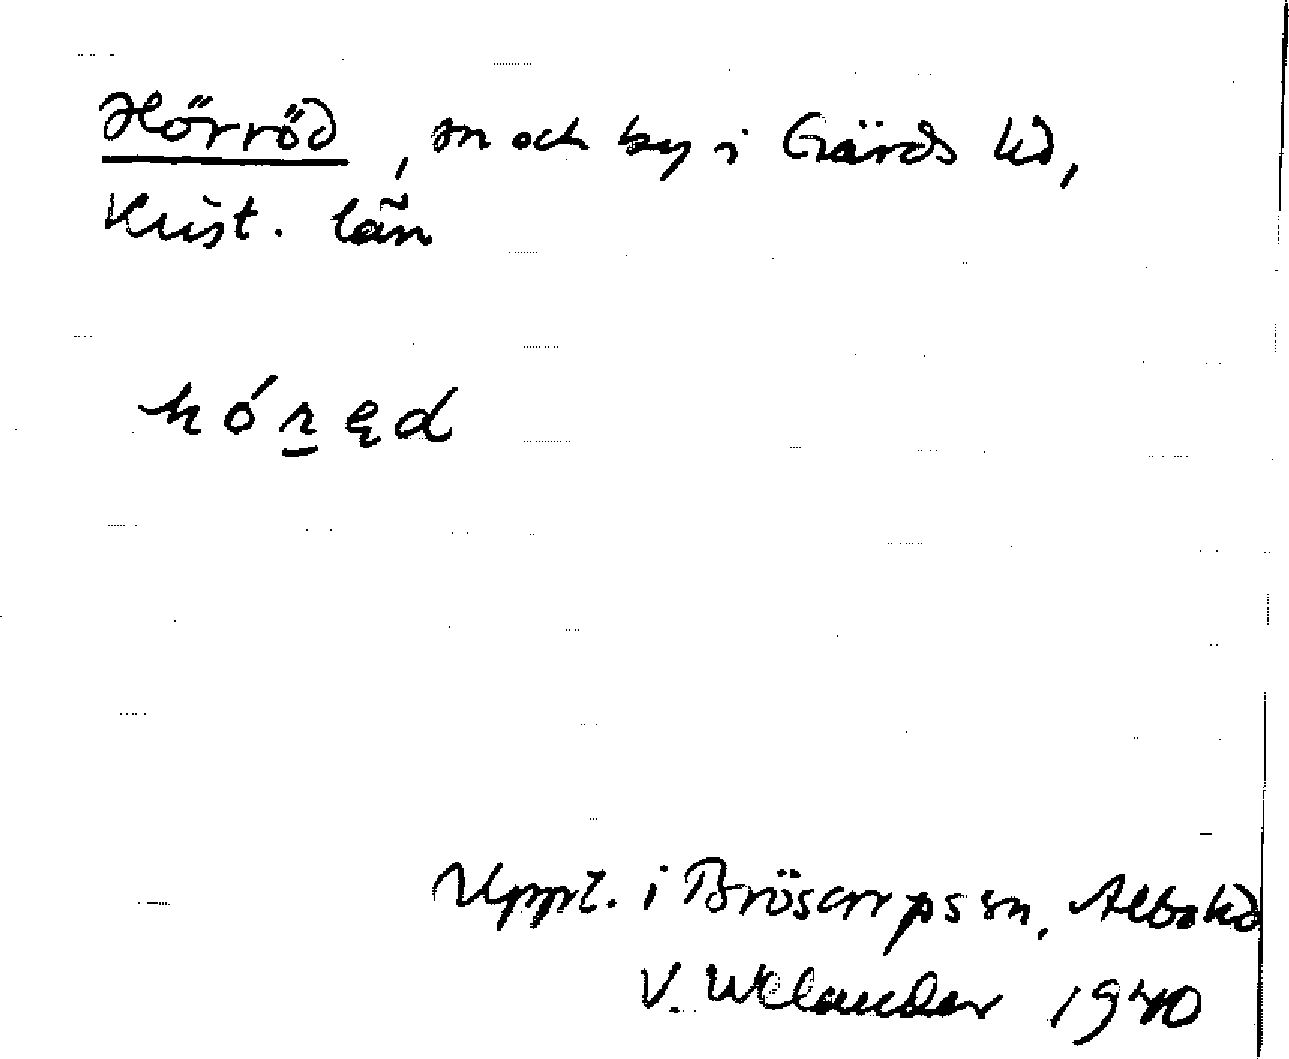 Hörröd, sn och by i Gärds hd,
Krist. län
hóṟęd
Uppt. i Brösarps sn, Albo hd
V. Welander 1940